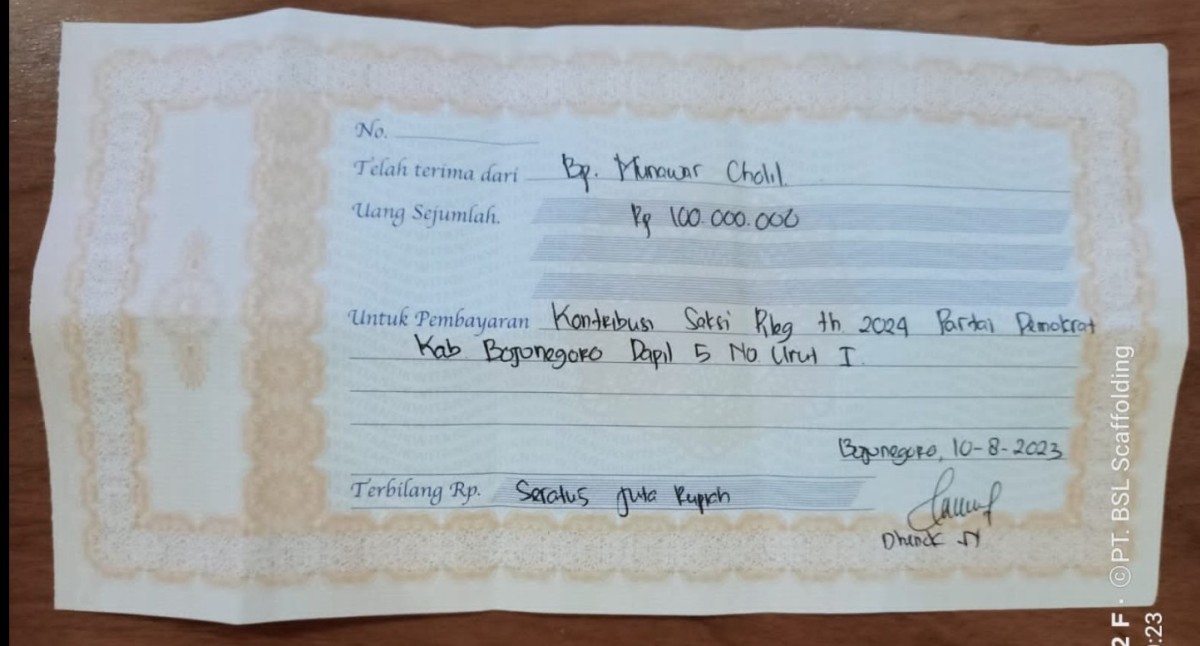 No.
Telah terima dari Bp. Munawar Cholil.
Uang Sejumlah. Rp 100.000.000
Untuk Pembayaran Kontribusi Saksi Pileg th 2024 Partai Demokrat
Kab Bojonegoro Dapil 5 No Urut I.
Bojonegoro, 10-8-2023
Terbilang Rp. Seratus juta Rupiah
2 F · © PT. BSL Scaffolding
:23